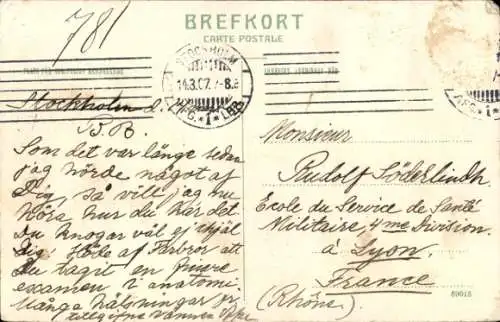 781
BREFKORT
CARTE POSTALE
STOCKHOLM
14.3.07. 7-8
AFG. *1* LBR.
Stockholm d.
B.B.
Som det var länge sedan
jag hörde något af
Dig, så vill jag nu
höra hur du har det.
Du knogar väl ej ihjäl
dig. Hörde af Farbror att
Du tagit en finare
examen i anatomi.
Många hälsningar fr.
vännen
Monsieur
Rudolf Söderlindh
Ecole du Service de Santé
Militaire, 4me Division.
à Lyon.
France
(Rhône)